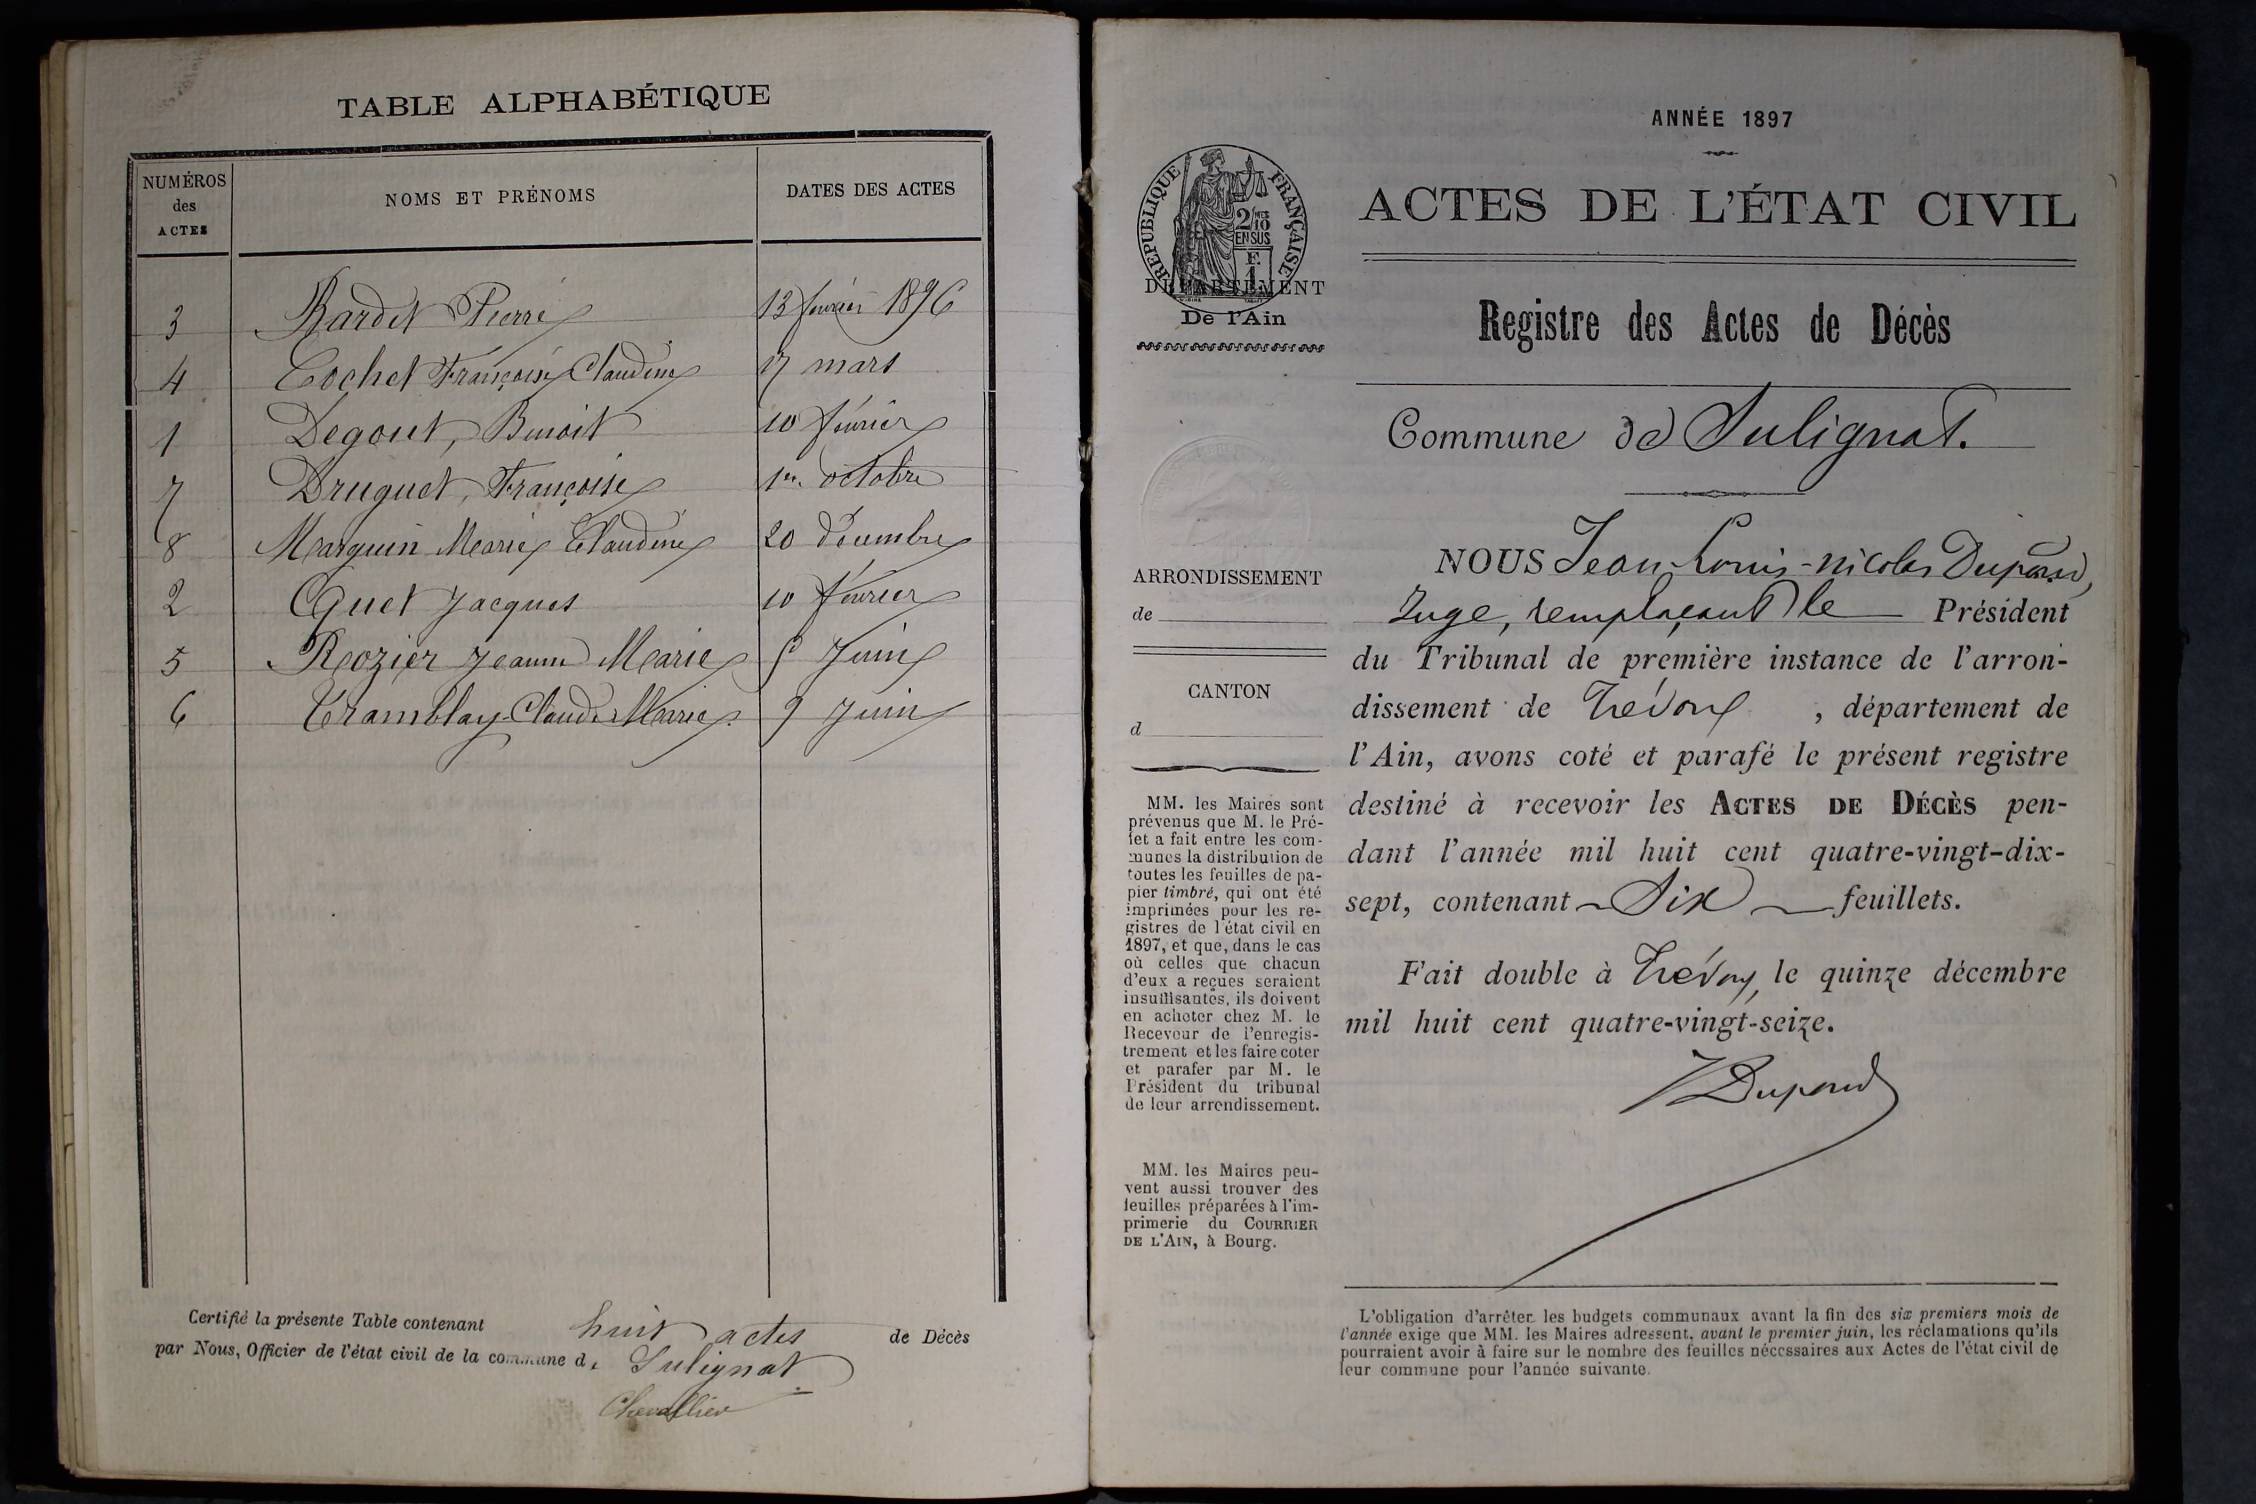 TABLE ALPHABÉTIQUE
NUMÉROS des ACTES
NOMS ET PRÉNOMS
DATES DES ACTES
3 Bardet Pierre 13 février 1896
4 Cochet Françoise Claudine 17 mars
1 Degout, Benoit 10 février
7 Druguet, Françoise 1er octobre
8 Marguin Marie Claudine 20 décembre
2 Guet Jacques 10 février
5 Rozier Jeanne Marie 5 Juin
6 Tramblay Claude Marie 9 Juin
Certifié la présente Table contenant huit actes de Décès
par Nous, Officier de l'état civil de la commune de Sulignat
Chevallier
ANNÉE 1897
RÉPUBLIQUE FRANÇAISE
2/10 EN SUS
F. 1
DÉPARTEMENT
De l'Ain
ACTES DE L'ÉTAT CIVIL
Registre des Actes de Décès
Commune de Sulignat.
ARRONDISSEMENT
de
CANTON
d
MM. les Maires sont
prévenus que M. le Pré-
fet a fait entre les com-
munes la distribution de
toutes les feuilles de pa-
pier timbré, qui ont été
imprimées pour les re-
gistres de l'état civil en
1897, et que, dans le cas
où celles que chacun
d'eux a reçues seraient
insuffisantes, ils doivent
en acheter chez M. le
Receveur de l'enregis-
trement et les faire coter
et parafer par M. le
Président du tribunal
de leur arrondissement.
MM. les Maires peu-
vent aussi trouver des
feuilles préparées à l'im-
primerie du COURRIER
DE L'AIN, à Bourg.
NOUS Jean-Louis-nicolas Dupond,
Juge, remplaçant le Président
du Tribunal de première instance de l'arron-
dissement de Trévoux, département de
l'Ain, avons coté et parafé le présent registre
destiné à recevoir les ACTES DE DÉCÈS pen-
dant l'année mil huit cent quatre-vingt-dix-
sept, contenant Six feuillets.
Fait double à Trévoux, le quinze décembre
mil huit cent quatre-vingt-seize.
Dupond
L'obligation d'arrêter les budgets communaux avant la fin des six premiers mois de
l'année exige que MM. les Maires adressent, avant le premier juin, les réclamations qu'ils
pourraient avoir à faire sur le nombre des feuilles nécessaires aux Actes de l'état civil de
leur commune pour l'année suivante.